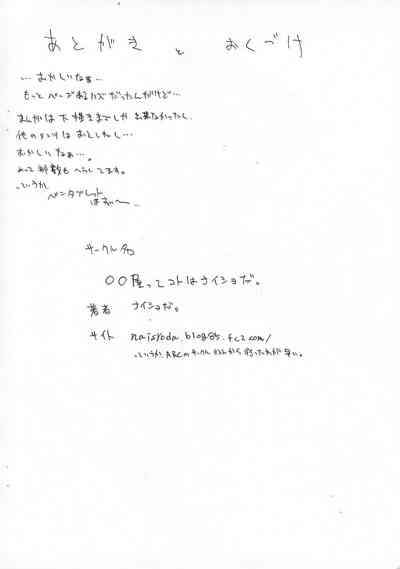 あとがき と おくづけ
…おかしいなぁ…
もっとページあるハズだったんだけど…
まんがは下描きまでしか出来なかったし
他のメンツはおとしたし…
おかしいなぁ…。
よって部数もへらしてます。
…というか
ペンタブレット
ほすぃ～
サークル名
○○屋ってコトはナイショだ。
著者 ナイショだ。
サイト naisyoda.blog85.fc2.com/
…というか、ABCのサークルカットから行った方が早い。